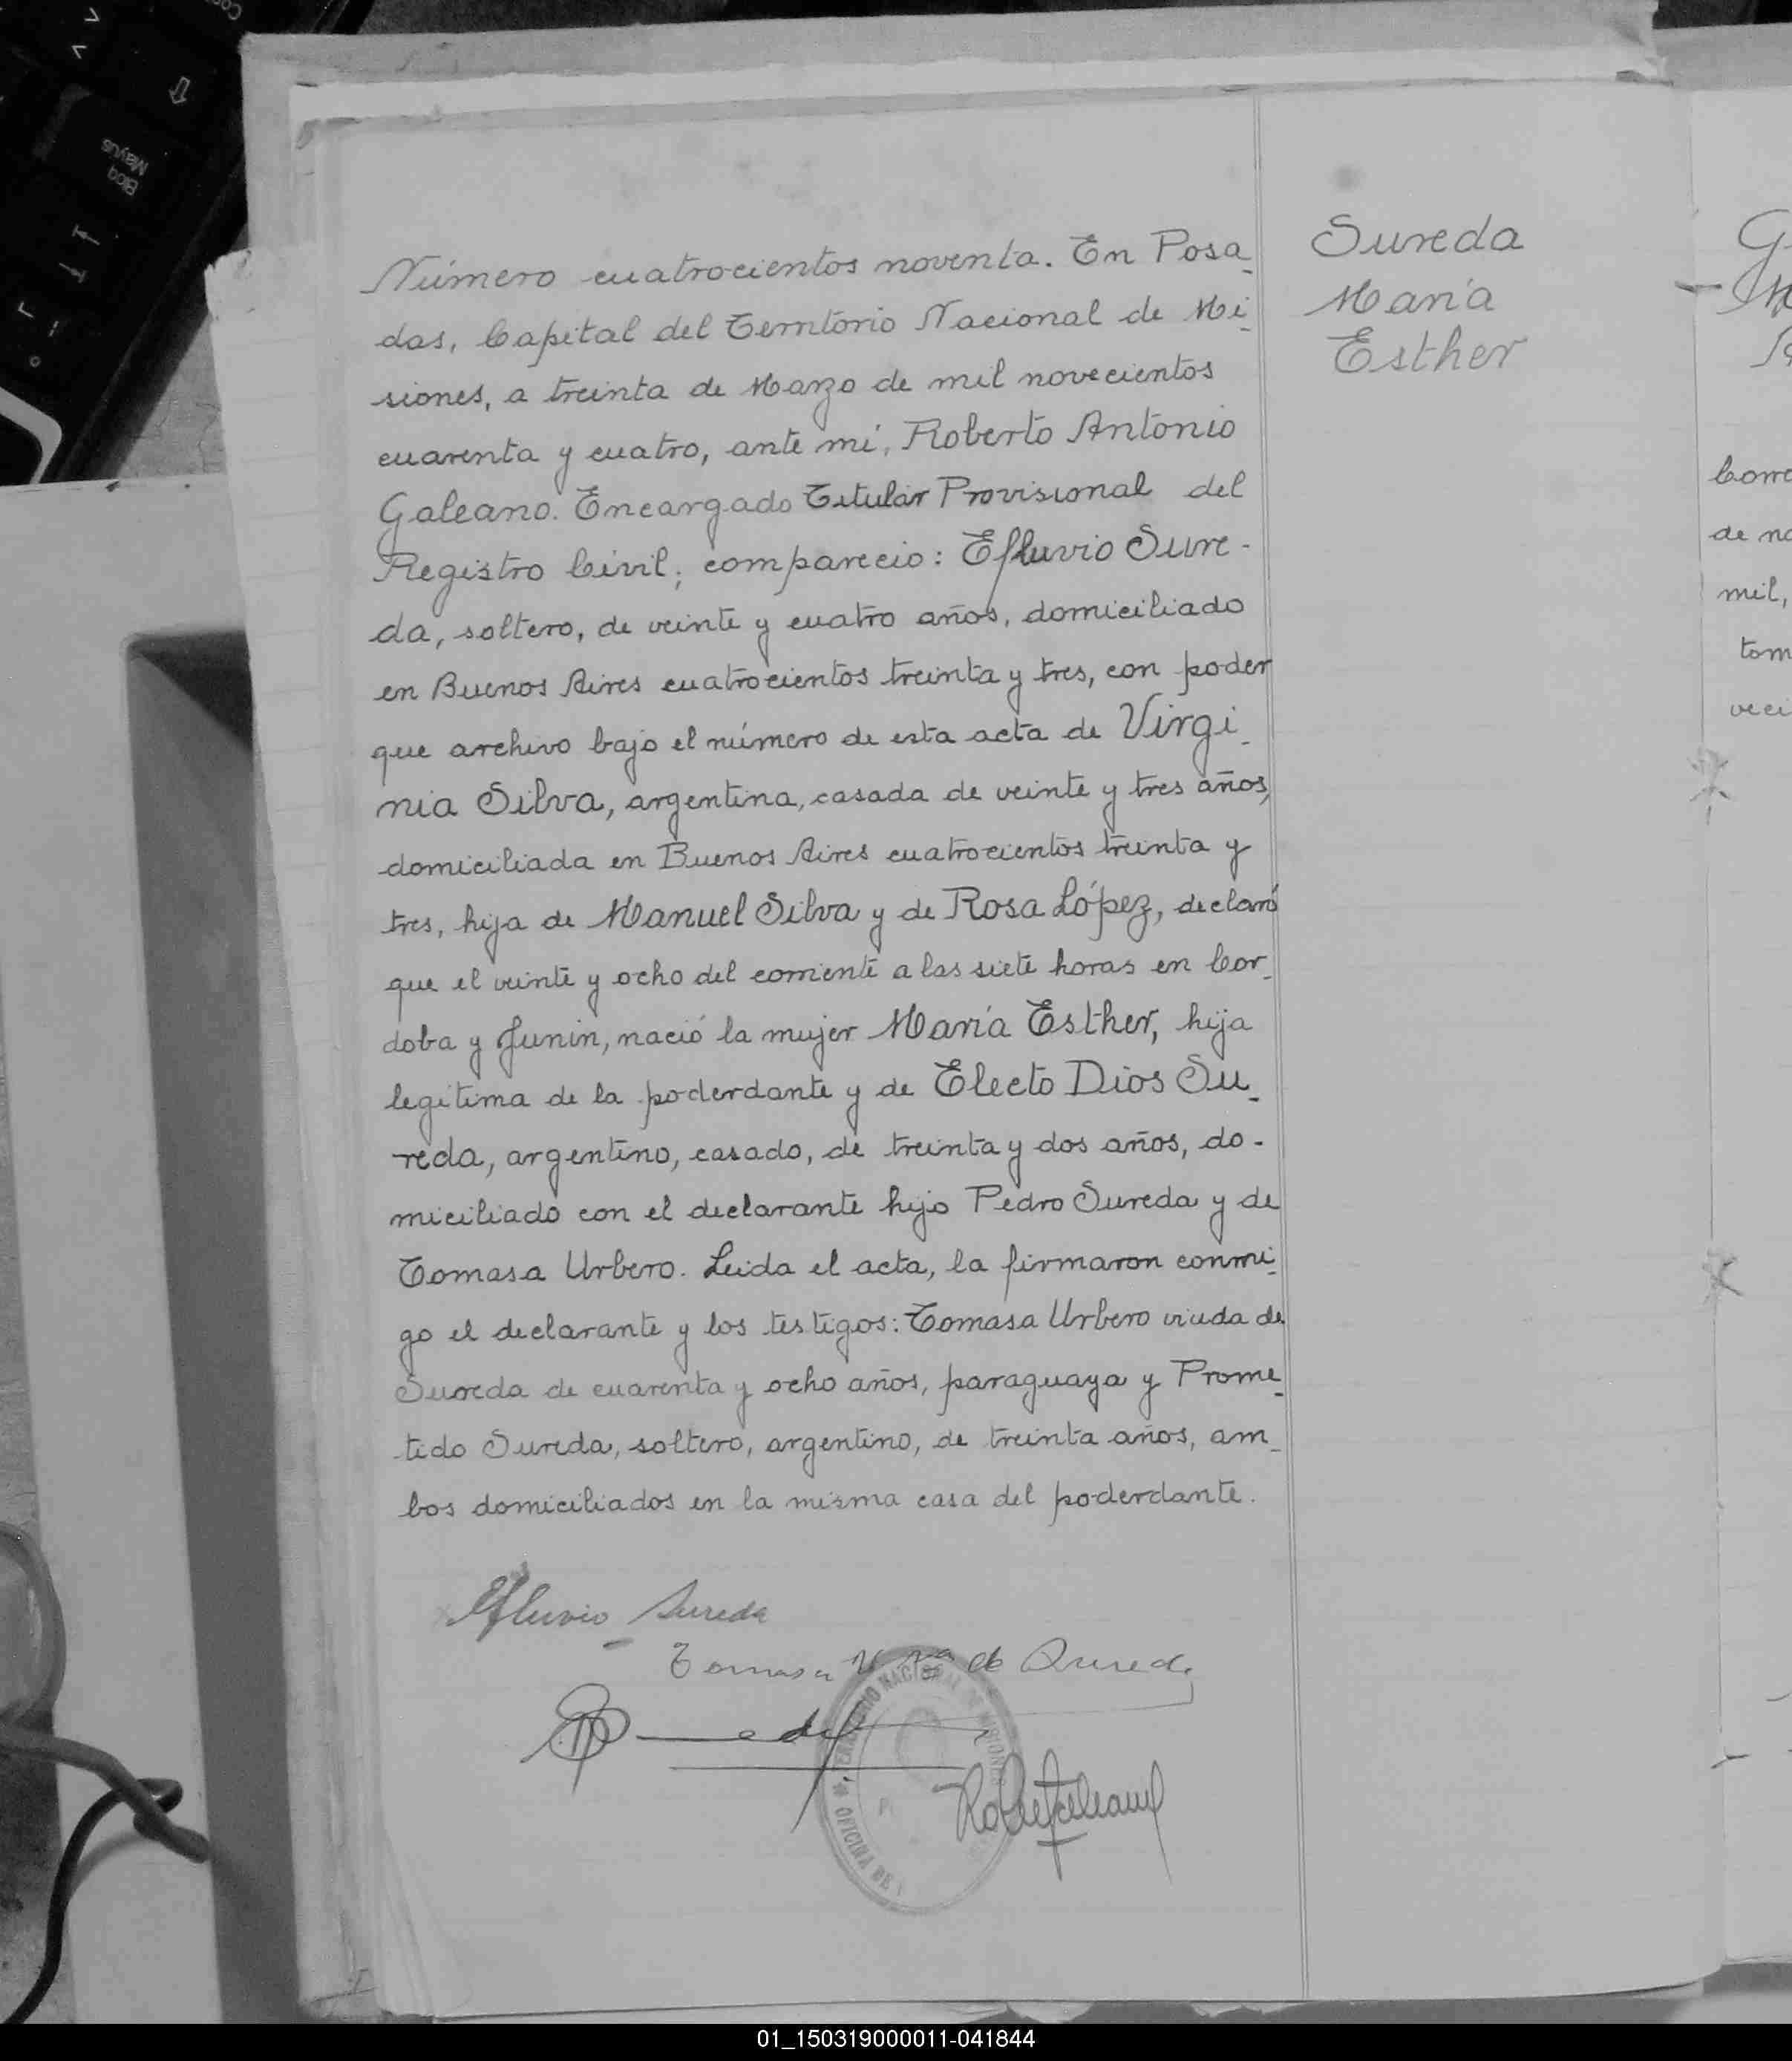 Número cuatrocientos noventa. En Posa-
das, Capital del Territorio Nacional de Mi-
siones, a treinta de Marzo de mil novecientos
cuarenta y cuatro, ante mí, Roberto Antonio
Galeano. Encargado Titular Provisional del
Registro Civil; comparecio: Efluvio Sure-
da, soltero, de veinte y cuatro años, domiciliado
en Buenos Aires cuatrocientos treinta y tres, con poder
que archivo bajo el número de esta acta de Virgi-
nia Silva, argentina, casada de veinte y tres años,
domiciliada en Buenos Aires cuatrocientos treinta y
tres, hija de Manuel Silva y de Rosa López, declaró
que el veinte y ocho del corriente a las siete horas en Cor-
doba y Junin, nació la mujer María Esther, hija
legitima de la poderdante y de Electo Dios Su-
reda, argentino, casado, de treinta y dos años, do-
miciliado con el declarante hijo Pedro Sureda y de
Tomasa Urbero. Leida el acta, la firmaron conmi-
go el declarante y los testigos: Tomasa Urbero viuda de
Sureda de cuarenta y ocho años, paraguaya y Prome-
tido Sureda, soltero, argentino, de treinta años, am-
bos domiciliados en la misma casa del poderdante.
Efluvio Sureda
Tomasa de Sureda
TERRITORIO NACIONAL DE MISIONES
OFICINA DE
Sureda
María
Esther
mil,
Bloq
Mayus
01_150319000011-041844